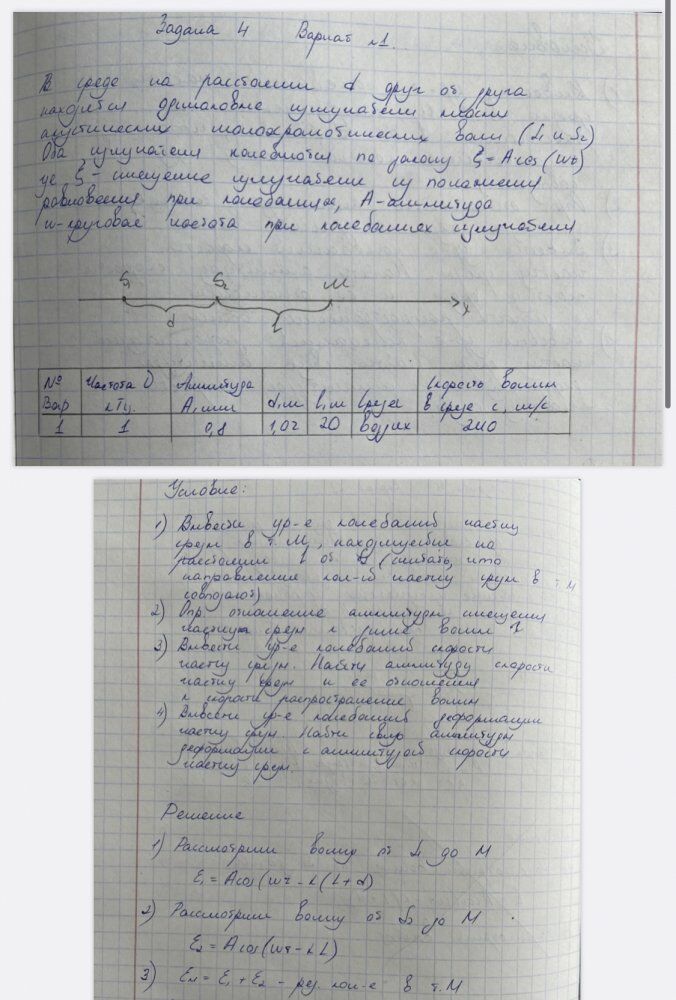 Задача 4 Вариат №1.
В среде на расстоянии d друг от друга
находятся одинаковые излучатели плоских
акустических монохроматических волн (S₁ и S₂)
Оба излучателя колеблются по закону ξ = A cos(wt)
где ξ - смещение излучателя из положения
равновесия при колебаниях, A - амплитуда
w - круговая частота при колебаниях излучателя
S₁ S₂ M
d L x
№ Вар Частота ν кГц. Амплитуда A, мм d, м l, м Среда Скорость волны в среде c, м/с
1 1 0,8 1,02 20 воздух 340
Условие:
1) Вывести ур-е колебаний частиц
среды в т. M, находящейся на
расстоянии l от S₂ (считать, что
направления кол-ий частиц среды в т. M
совпадают)
2) Опр. отношение амплитуды смещения
частицы среды к длине волны λ
3) Вывести ур-е колебаний скорости
частиц среды. Найти амплитуду скорости
частиц среды и ее отношения
к скорости распространение волны
4) Вывести ур-е колебаний деформации
частиц среды. Найти связь амплитуды
деформации с амплитудой скорости
частиц среды.
Решение
1) Рассмотрим волну от S₁ до M
ξ₁ = A cos(wt - k(L+d)
2) Рассмотрим волну от S₂ до M
ξ₂ = A cos(wt - kL)
3) ξм = ξ₁ + ξ₂ - рез. кол-е в т. M